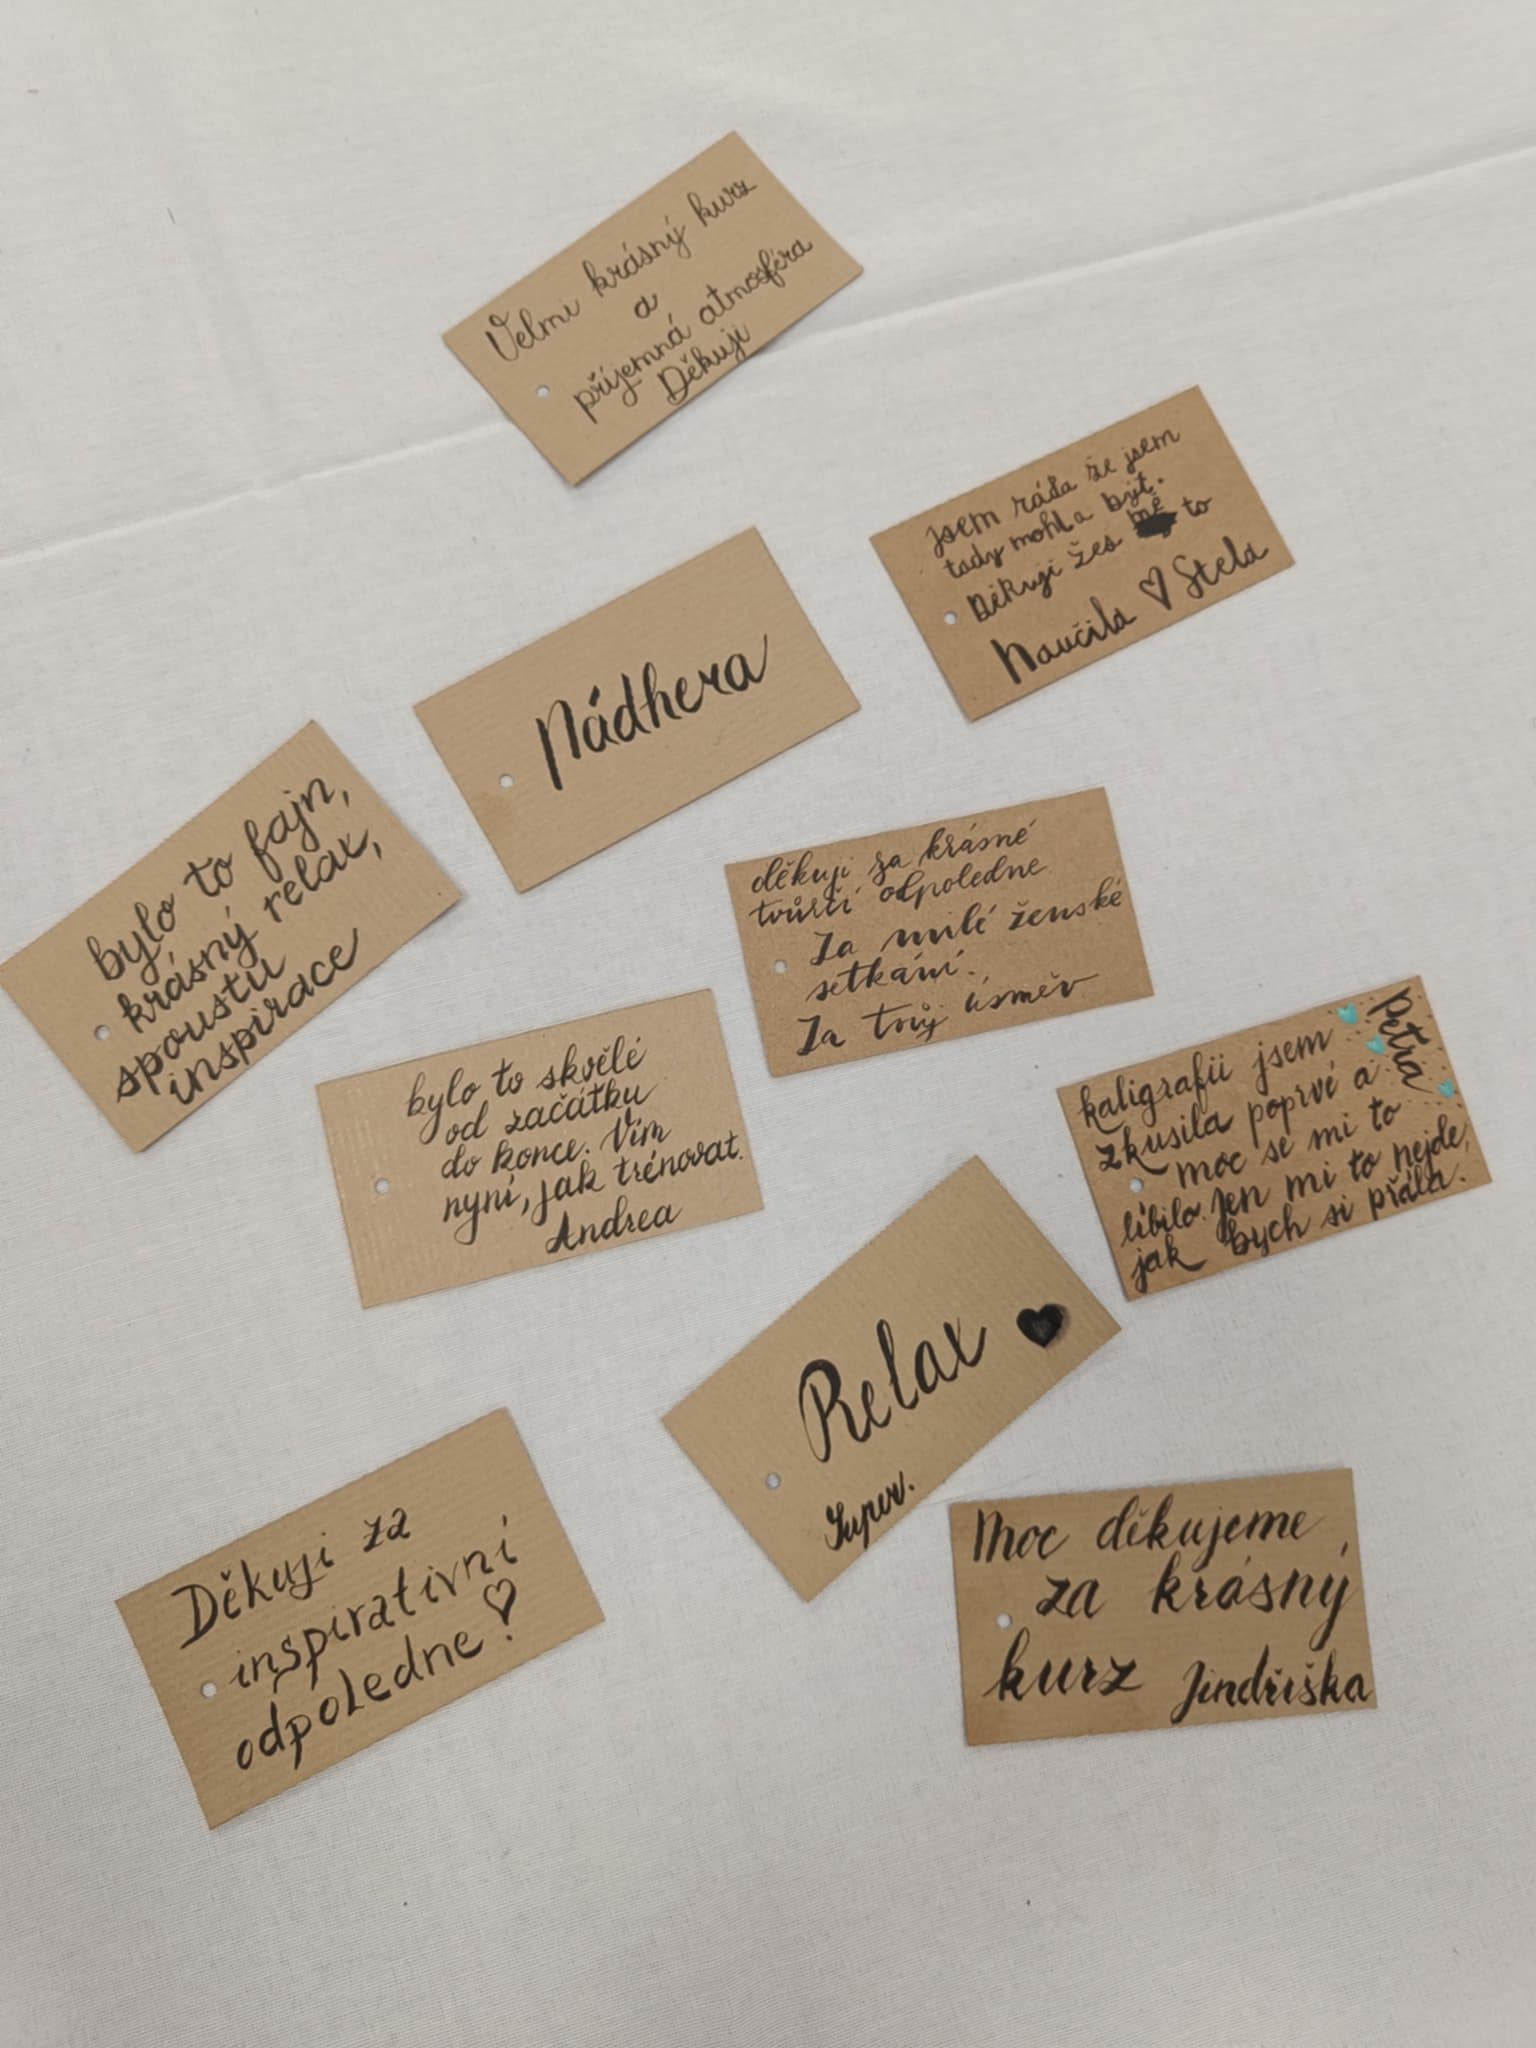 Velmi krásný kurz
a
příjemná atmosféra
Děkuji
jsem ráda že jsem
tady mohla být.
Děkuji žes mě to
Naučila ♡ Stela
Nádhera
bylo to fajn,
krásný relax,
spoustu
inspirace
děkuji za krásné
tvůrčí odpoledne
Za milé ženské
setkání.
Za tvůj úsměv
bylo to skvělé
od začátku
do konce. Vím
nyní, jak trénovat.
Andrea
Petra
kaligrafii jsem
zkusila poprvé a
moc se mi to
líbilo. Jen mi to nejde,
jak bych si přála.
Relax ♥
Super.
Děkuji za
inspirativní
odpoledne! ♡
Moc děkujeme
za krásný
kurz Jindřiška